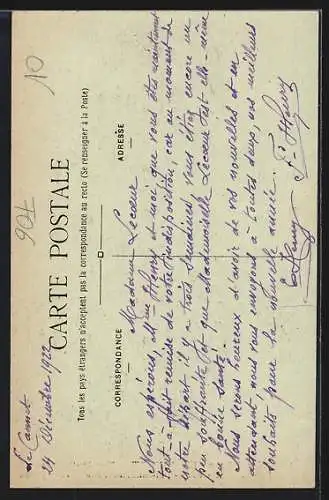 10
90f
Le Cannet
24 Décembre 1922
CARTE POSTALE
Tous les pays étrangers n'acceptent pas la correspondance au recto (Se renseigner à la Poste)
CORRESPONDANCE
ADRESSE
Madame Lecoeur
Nous espérons, Mme Fleury et moi que vous êtes maintenant
tout à fait remise de votre indisposition, car au moment de
notre départ il y a trois semaines, vous étiez encore un
peu souffrante et que Mademoiselle Lecoeur est elle-même
en bonne santé.
Nous serons heureux d'avoir de vos nouvelles et en
attendant nous vous envoyons à toutes deux, nos meilleurs
souhaits pour la nouvelle année.
Fleury